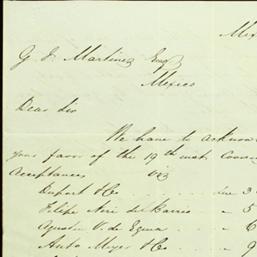 Mex
G. J. Martinez Esqr
Mexico
Dear Sir
We have to acknow
your favor of the 19th inst. Cover
Acceptances viz
Dupert & Co due 3
Felipe Neri del Barrio - 5
Agustin V. de Eguia - - 6
Anto Meyer & Co - - 9